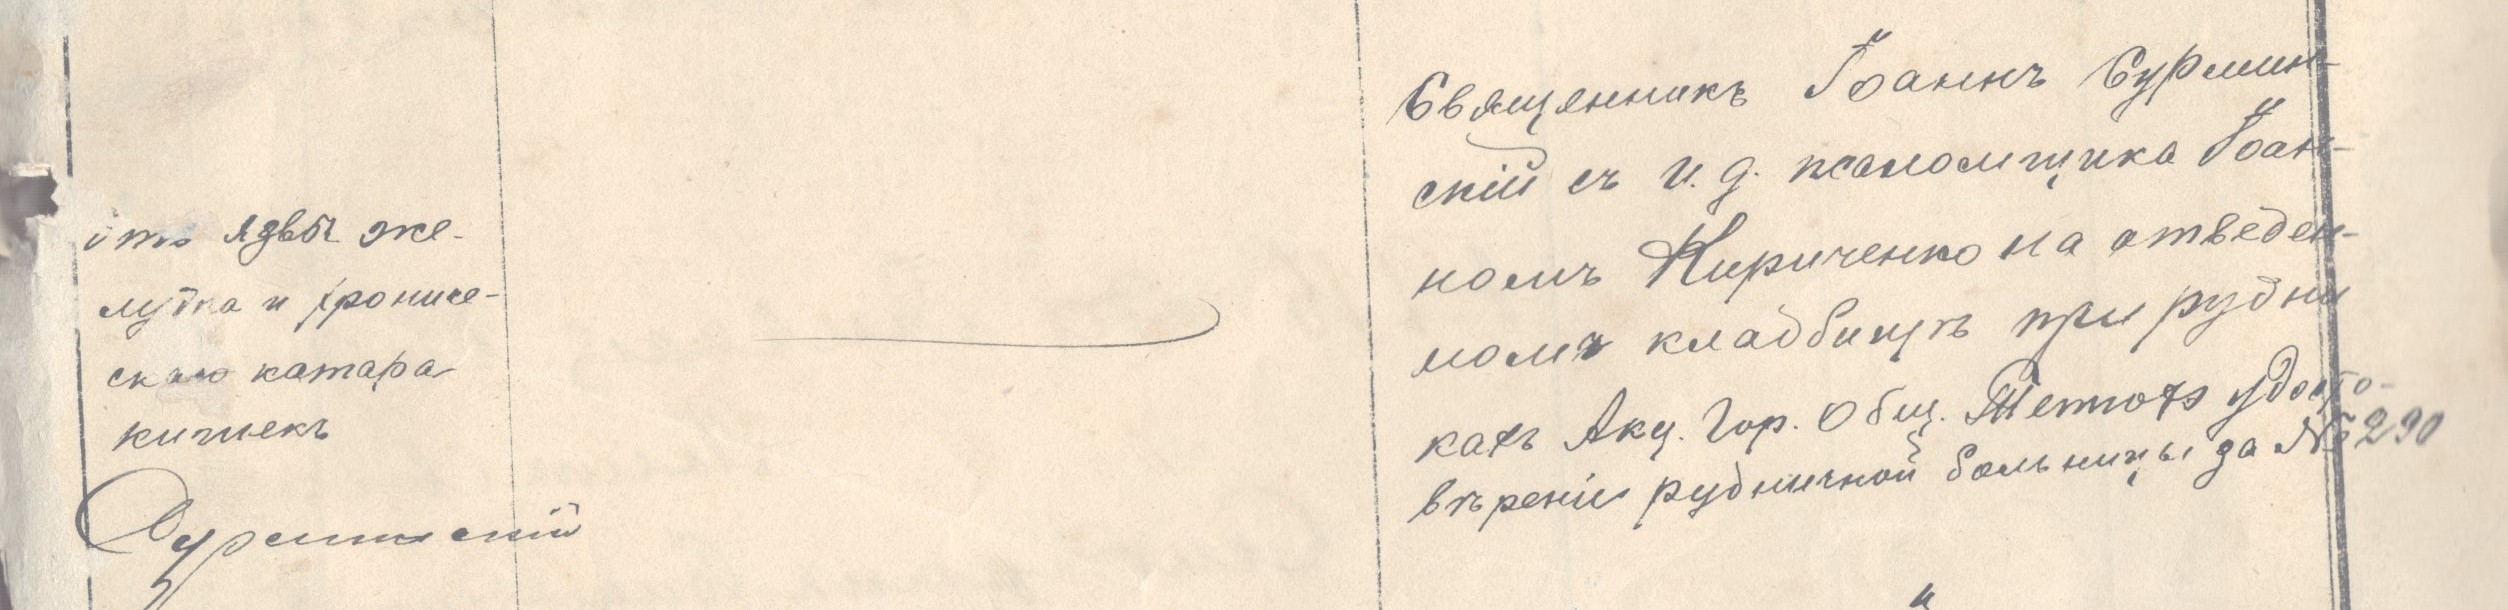 отъ язвы же-
лудка и хрониче-
скаго катара
кишекъ
Сурминскій
Священникъ Іоаннъ Сурмин-
скій съ и. д. псаломщика Іоан-
номъ Кириченко на отведен-
номъ кладбищѣ при рудни
кахъ Акц. Гор. Общ. Тетюхэ удосто-
вѣреніе рудничной больницы за № 290